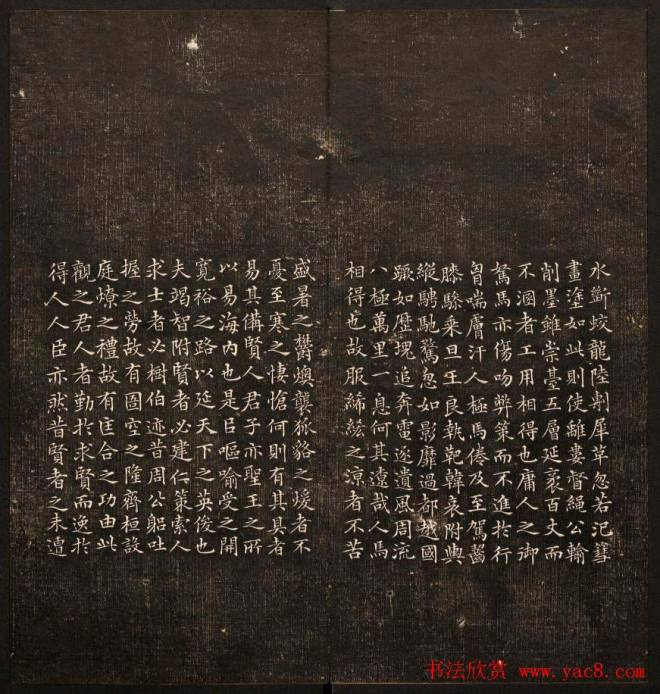 水斷蛟龍陸剸犀革忽若汜篲
畫塗如此則使離婁督繩公輸
削墨雖崇臺五層延袤百丈而
不溷者工用相得也庸人之御
駑馬亦傷吻弊策而不進於行
胷喘膚汗人極馬倦及至駕齧
膝驂乘旦王良執靶韓哀附輿
縱騁馳騖忽如影靡過都越國
蹶如歷塊追奔電逐遺風周流
八極萬里一息何其遼哉人馬
相得也故服絺綌之涼者不苦
盛暑之鬱燠襲狐貉之煖者不
憂至寒之悽愴何則有其具者
易其備賢人君子亦聖王之所
以易海內也是㠯嘔喻受之開
寬裕之路以延天下之英俊也
夫竭智附賢者必建仁策索人
求士者必樹伯迹昔周公躳吐
握之勞故有圄空之隆齊桓設
庭燎之禮故有匡合之功由此
觀之君人者勤於求賢而逸於
得人人臣亦然昔賢者之未遭
书法欣赏 www.yac8.com